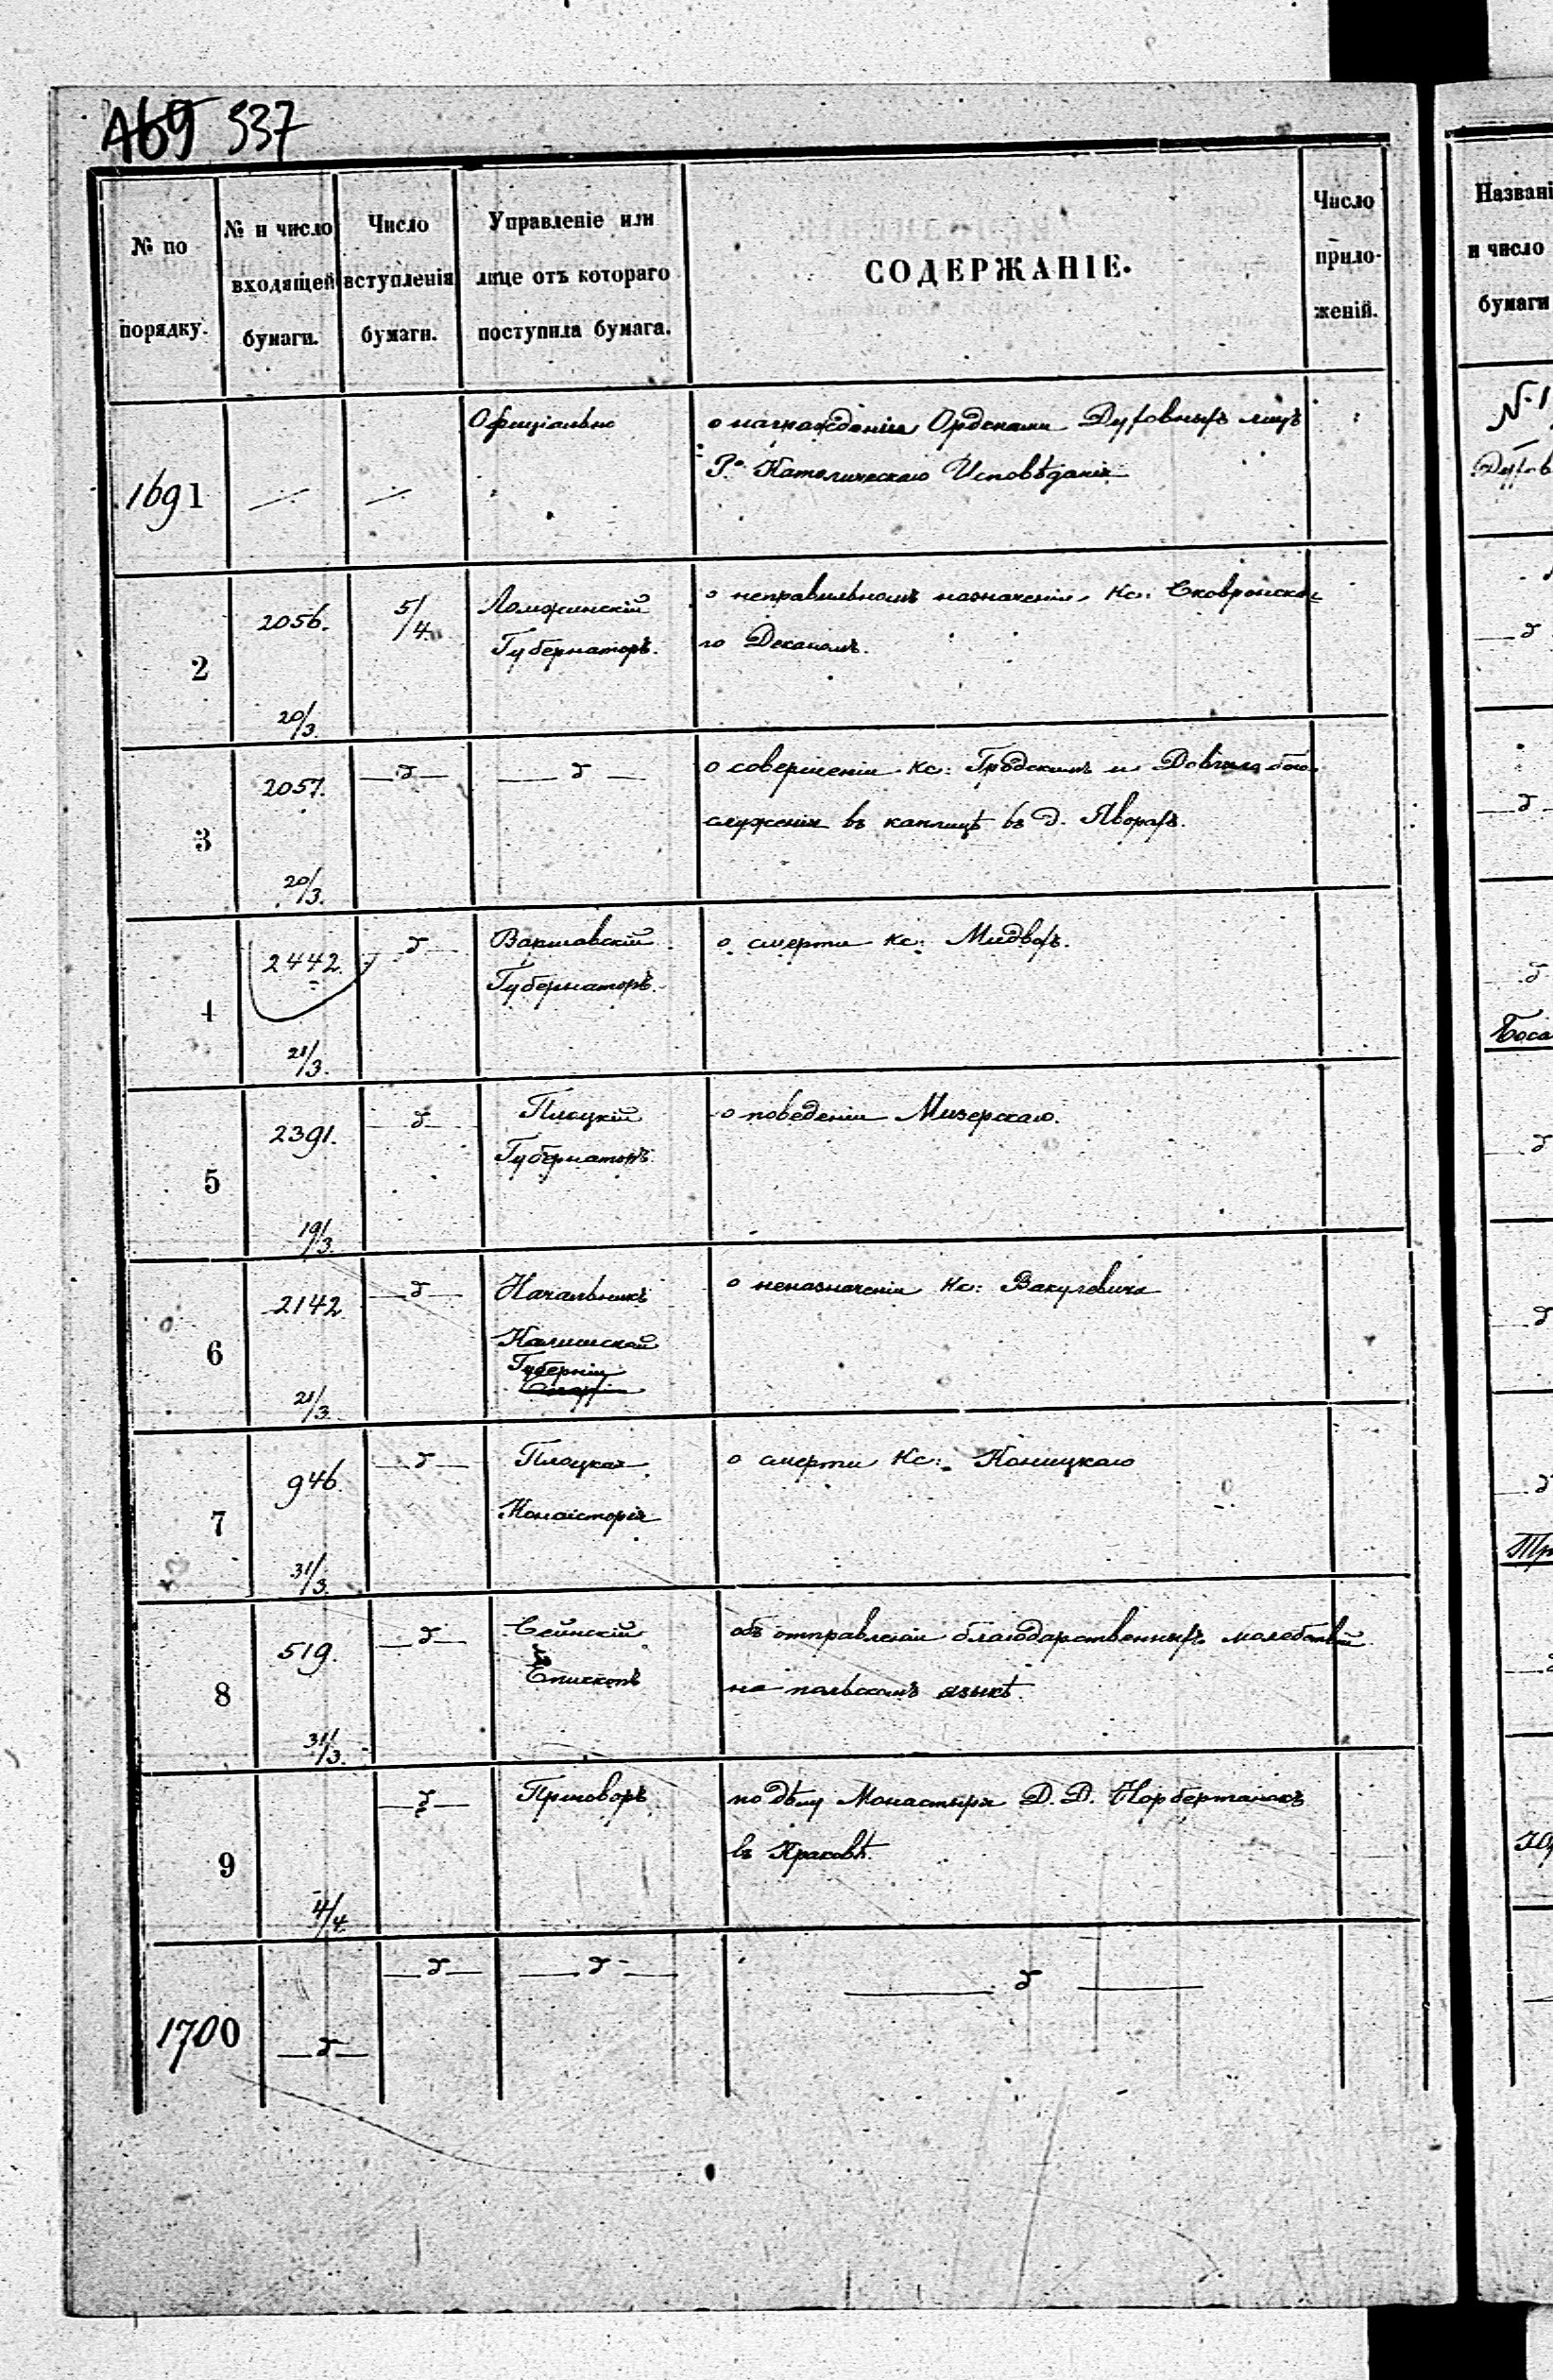 А69 537
№ по порядку.
№ и число входящей бумаги.
Число вступленія бумаги.
Управленіе или лице отъ котораго поступила бумага.
СОДЕРЖАНІЕ.
Число приложеній.
1691 — — Офиціально о награжденіи Орденами Духовныхъ лицъ
Р. Католическаго Исповѣданія
2 2056. 20/3. 5/4. Ломжинскій Губернаторъ. о неправильномъ назначеніи Кс: Сковронска-
го Деканомъ.
3 2057. 20/3. —д— —д— о совершеніи Кс: Гродскимъ и бого-
служенія въ каплицѣ въ д. Яворахъ.
4 2442. 21/3. —д— Варшавскій Губернаторъ. о смерти Кс:
5 2391. 19/3. —д— Плоцкій Губернаторъ. о поведеніи Мизерскаго.
6 2142 21/3. —д— Начальникъ Калишской Губерніи о неназначеніи Кс: Вакулевича
7 946. 31/3. —д— Плоцкая Консисторія о смерти Кс: Коницкаго
8 519. 31/3. —д— Сейнскій Епископъ объ отправленіи благодарственныхъ молебствій
на польскомъ языкѣ.
9 4/4. —д— Приговоръ по дѣлу Монастыря Д.Д. Норбертанокъ
въ Краковѣ.
1700 —д— —д— —д— —д—
Названі
и число
бумаги
№ 1
Духов